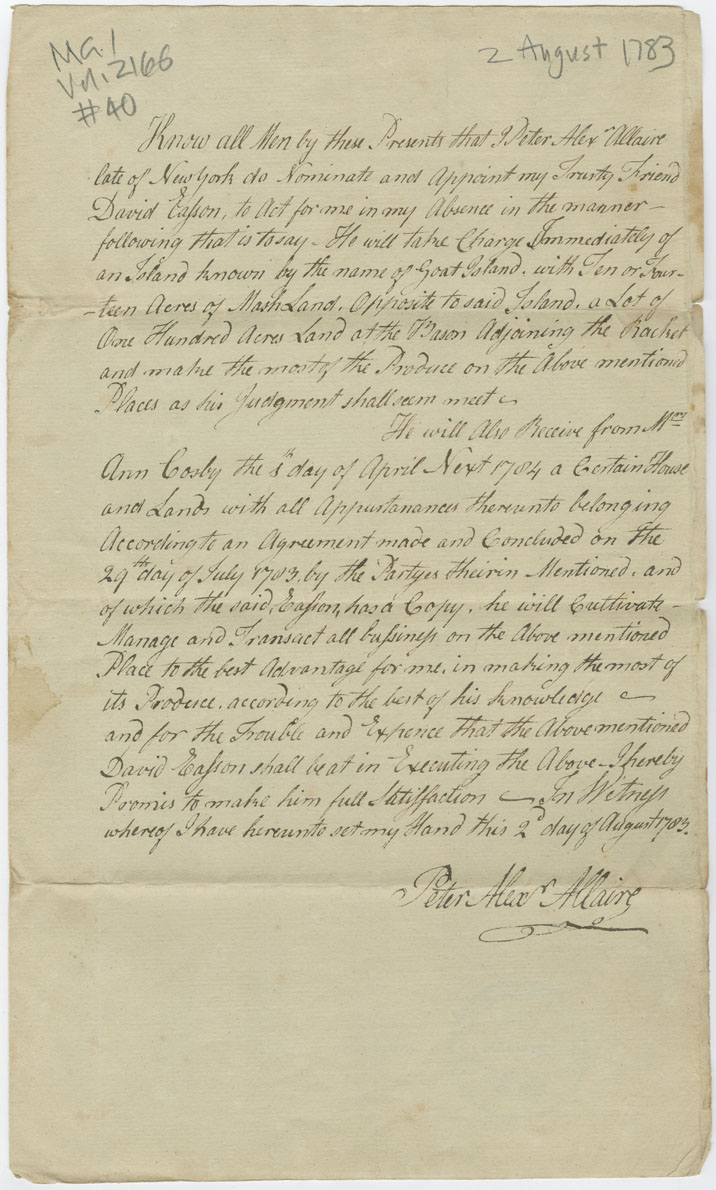 MG.1
Vol. 2166
#40
2 August 1783
Know all Men by these Presents that I Peter Alexr Allaire
late of New York do Nominate and Appoint my Trusty Friend
David Easson, to Act for me in my Absence in the manner–
following that is to say – He will take Charge Immediately of
an Island known by the name of Goat Island. with Ten or Four-
-teen Acres of Mash Land. Opposite to said Island. a Lot of
One Hundred Acres Land at the Bason Adjoining the Racket
and make the most of the Produce on the Above mentioned
Places as his Judgment shall seem meet
He will Also Receive from Mrs
Ann Cosby the day of April Next 1784 a Certain House
and Lands with all Appurtanances thereunto belonging
According to an Agreement made and Concluded on the
29th day of July 1783. by the Partyes theirin Mentioned. and
of which the said, Easson, has a Copy. he will Cultivate–
Manage and Transact all bussiness on the Above mentioned
Place to the best Advantage for me. in making the most of
its Produce. according to the best of his knowledge
and for the Trouble and Expence that the Above mentioned
David Easson shall be at in Executing the Above – I hereby
Promis to make him full Satisfaction In Witness
whereof I have hereunto set my Hand this 2d day of August 1783.
Peter Alexr Allaire